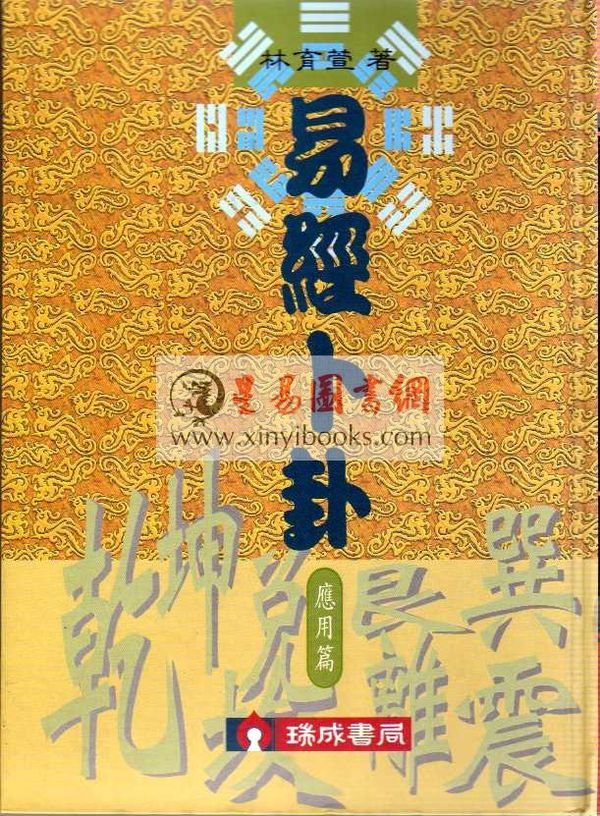 林育萱 著
易經卜卦
星易圖書網
www.xinyibooks.com
應用篇
乾 坤 兌 坎 艮 離 巽 震
瑞成書局